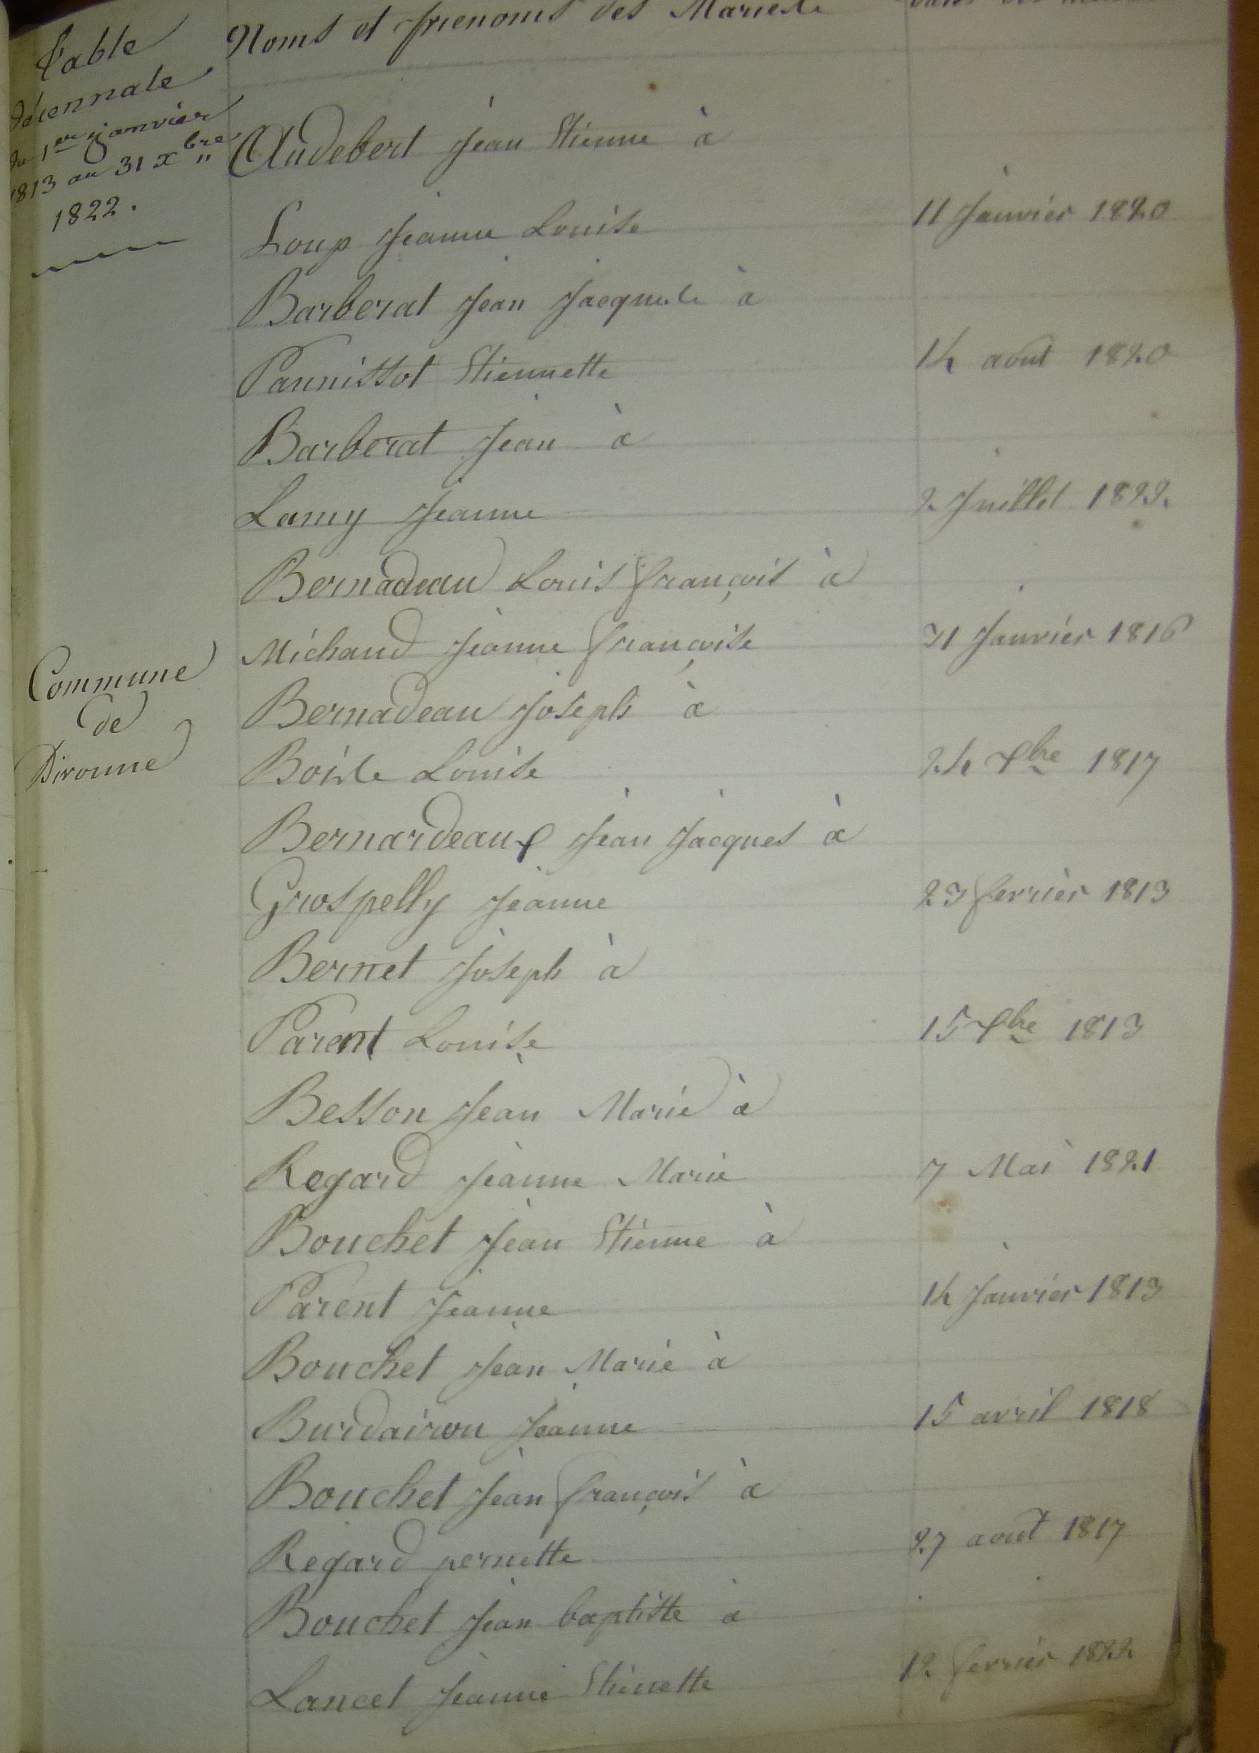 Table
décennale
du 1er janvier
1813 au 31 xbre
1822.
Noms et prénoms des Mariés
Audebert Jean Etienne à
Loup Jeanne Louise 11 Janvier 1820
Barberat Jean Jacques à
Pannissot Etiennette 14 août 1820
Barberat Jean à
Lamy Jeanne 2 Juillet 1822
Bernadeau Louis françois à
Michaud Jeanne françoise 31 Janvier 1816
Commune
de
Divonne
Bernadeau Joseph à
Boisle Louise 24 xbre 1817
Bernardeaux Jean Jacques à
Grospelly Jeanne 23 fevrier 1813
Bernet Joseph à
Parent Louise 15 xbre 1813
Besson Jean Marie à
Regard Jeanne Marie 7 Mai 1821
Bouchet Jean Etienne à
Parent Jeanne 14 Janvier 1813
Bouchet Jean Marie à
Burdairon Jeanne 15 avril 1818
Bouchet Jean françois à
Regard pernette 27 août 1817
Bouchet Jean baptiste à
Lancet Jeanne Etiennette 12 fevrier 1822